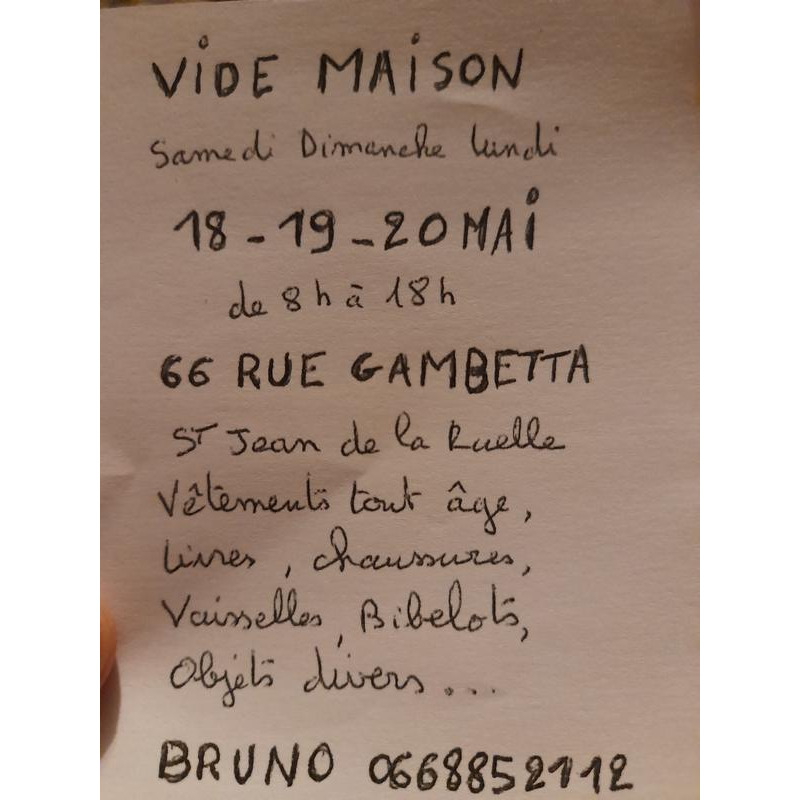 VIDE MAISON
Samedi Dimanche lundi
18 - 19 - 20 MAI
de 8h à 18h
66 RUE GAMBETTA
ST Jean de la Ruelle
Vêtements tout âge,
Livres, chaussures,
Vaisselles, Bibelots,
Objets divers...
BRUNO 0668852112